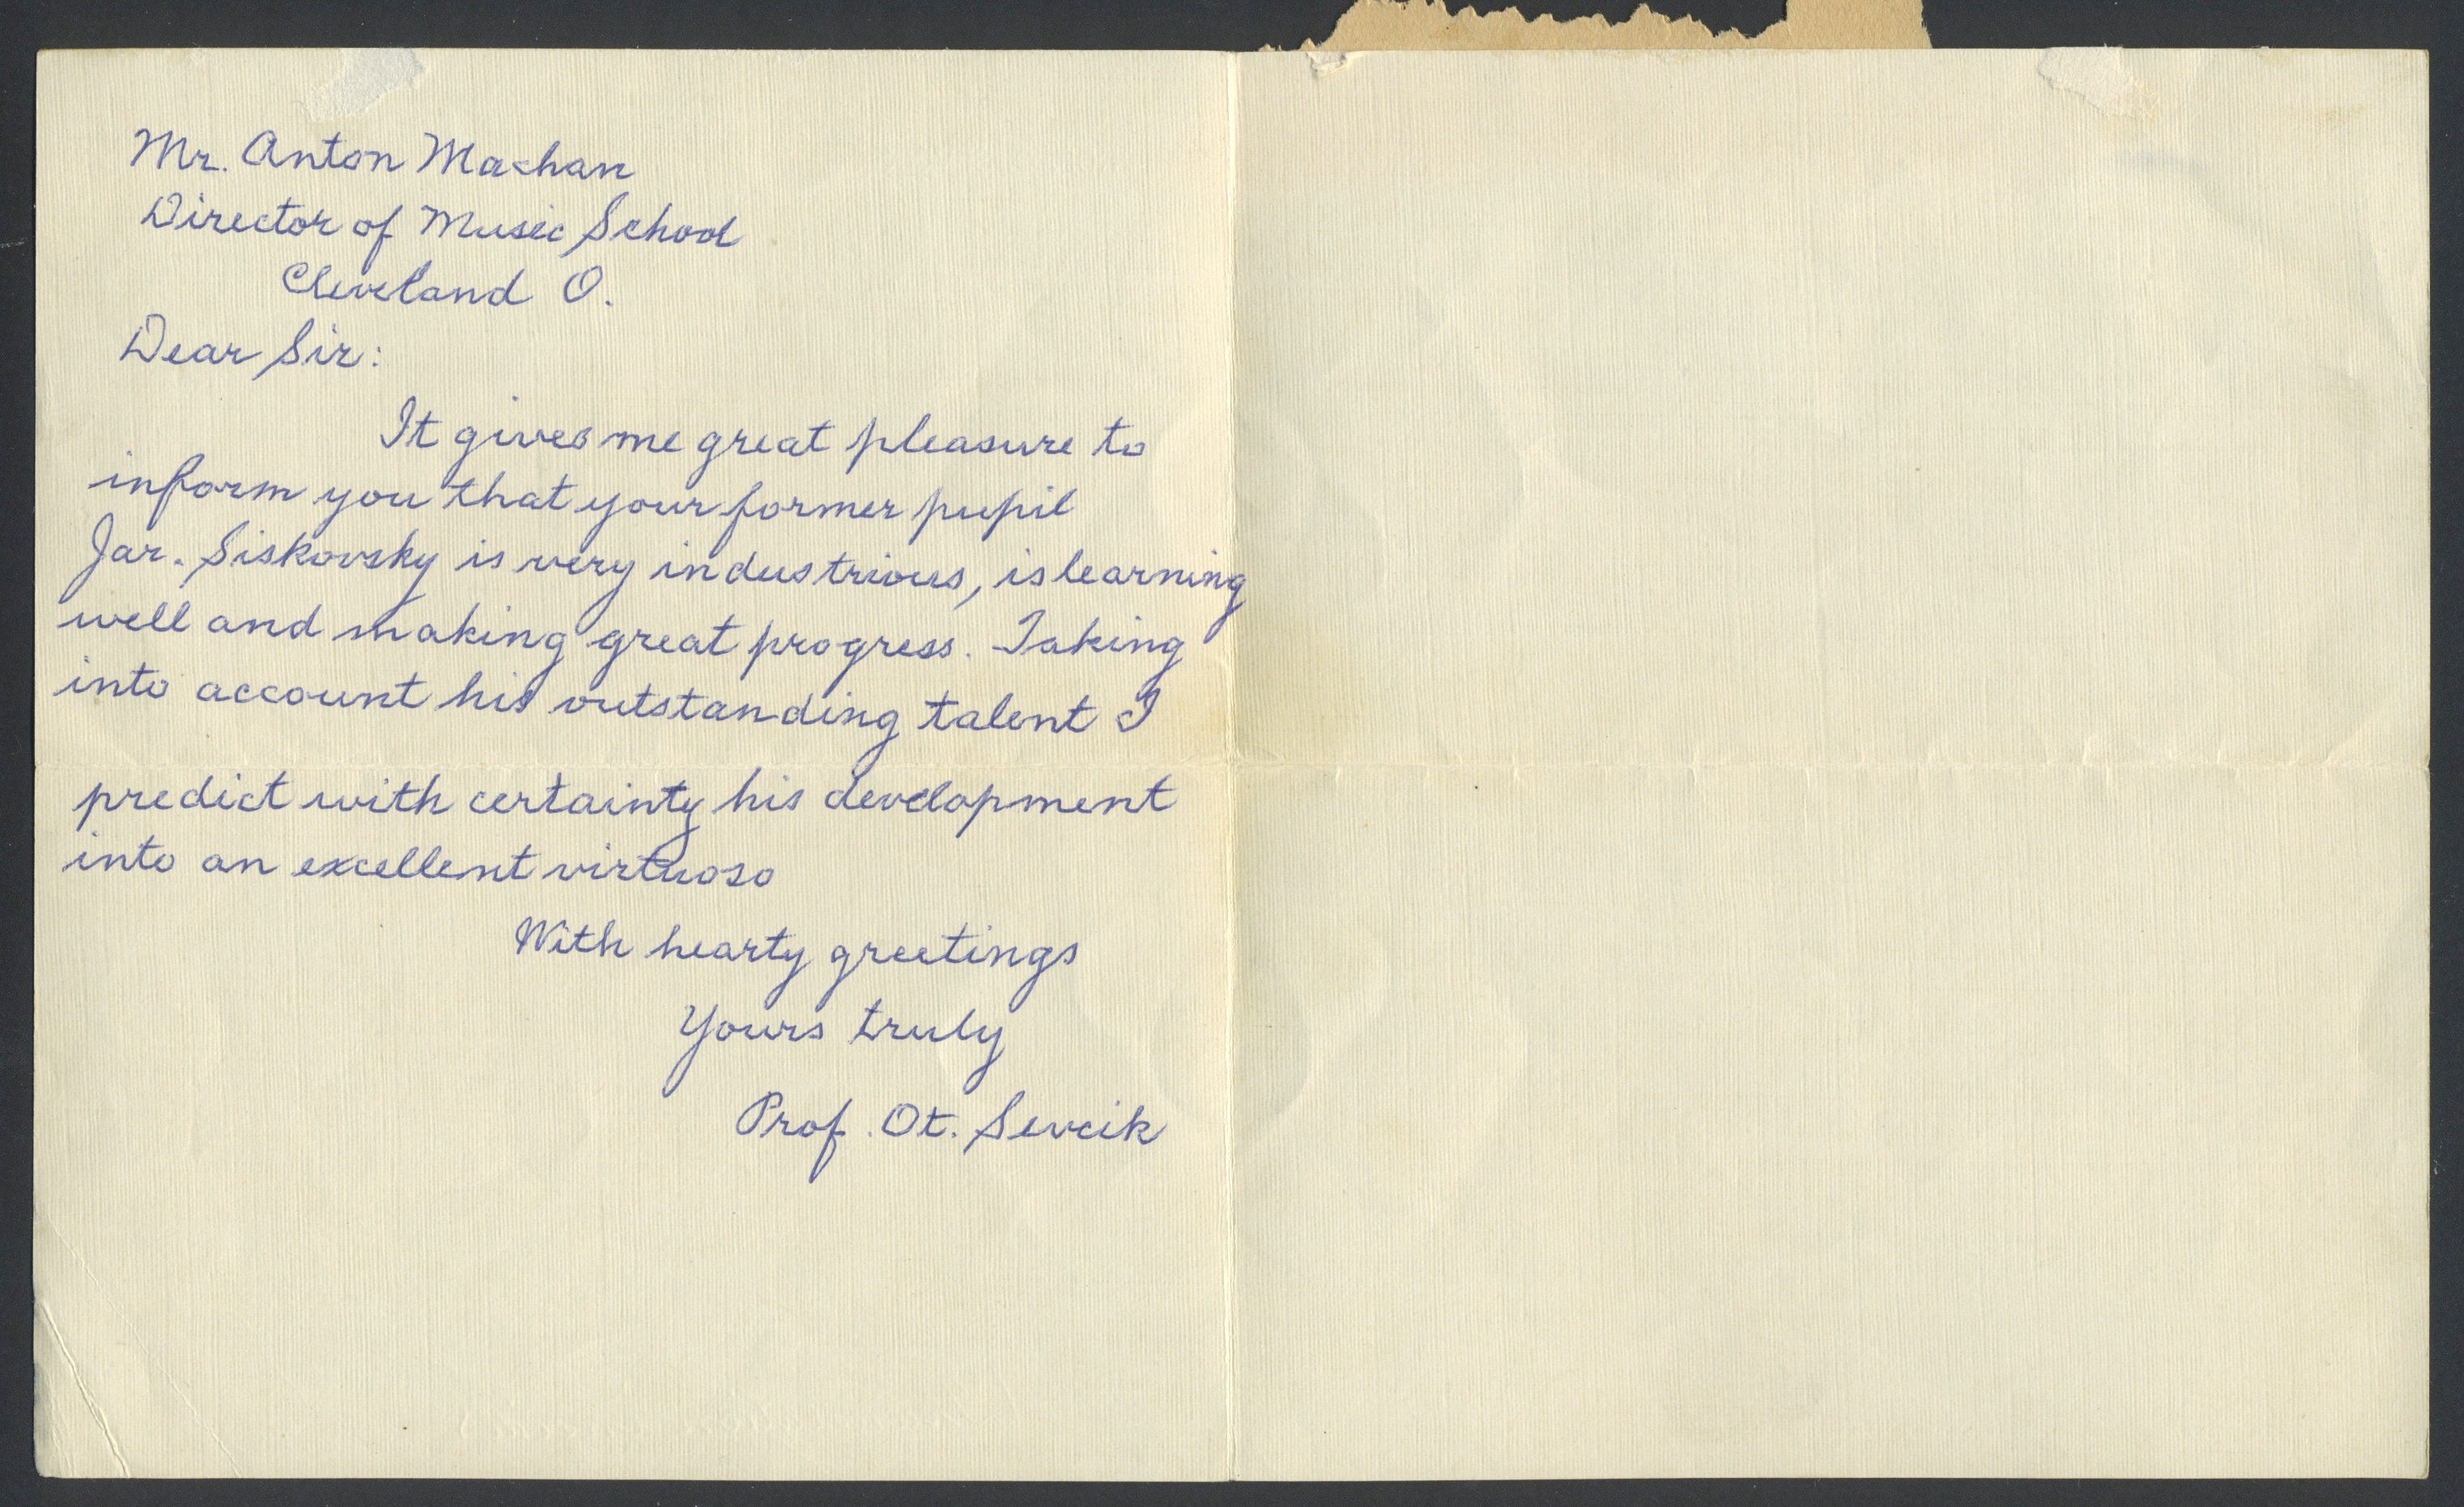 Mr. Anton Machan
Director of Music School
Cleveland O.
Dear Sir:
It gives me great pleasure to
inform you that your former pupil
Jar. Siskovsky is very industrious, is learning
well and making great progress. Taking
into account his outstanding talent I
predict with certainty his development
into an excellent virtuoso
With hearty greetings
Yours truly
Prof. Ot. Sevcik